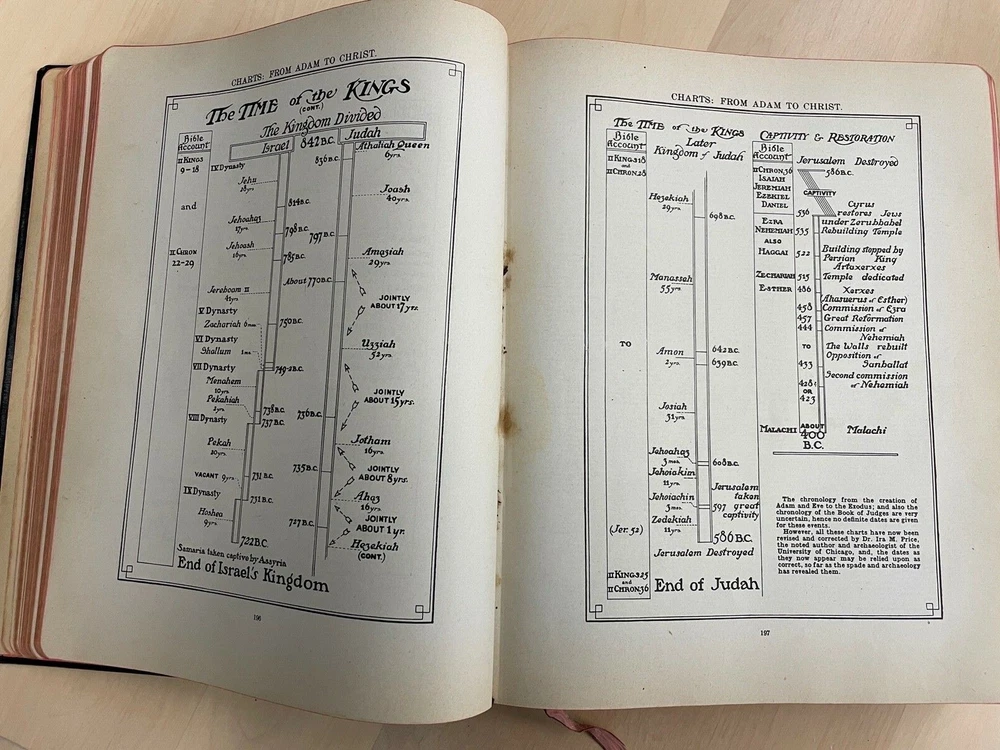 CHARTS: FROM ADAM TO CHRIST.
The TIME of the KINGS
(CONT.)
The Kingdom Divided
Bible Account
Israel
842 B.C.
Judah
II KINGS
9-18
and
II CHRON
22-29
IV Dynasty
Jehu
28 yrs.
814 B.C.
Jehoahaz
17 yrs.
798 B.C.
Jehoash
16 yrs.
785 B.C.
Jereboam II
41 yrs.
V Dynasty
Zachariah 6 mos.
750 B.C.
VI Dynasty
Shallum 1 mo.
VII Dynasty
749-8 B.C.
Menahem
10 yrs.
Pekahiah
2 yrs.
738 B.C.
737 B.C.
VIII Dynasty
Pekah
20 yrs.
VACANT 9 yrs.
731 B.C.
IX Dynasty
731 B.C.
Hoshea
9 yrs.
722 B.C.
Samaria taken captive by Assyria
End of Israel's Kingdom
836 B.C.
Athaliah Queen
6 yrs.
Joash
40 yrs.
797 B.C.
Amaziah
29 yrs.
About 770 B.C.
JOINTLY
ABOUT 17 yrs.
Uzziah
52 yrs.
JOINTLY
ABOUT 15 yrs.
736 B.C.
Jotham
16 yrs.
735 B.C.
JOINTLY
ABOUT 8 yrs.
Ahaz
16 yrs.
727 B.C.
JOINTLY
ABOUT 1 yr.
Hezekiah
(CONT.)
196
CHARTS: FROM ADAM TO CHRIST.
The TIME of the KINGS
Bible Account
Later
Kingdom of Judah
II KINGS 18
and
II CHRON. 28
TO
(Jer. 52)
II KINGS 25
and
II CHRON. 36
Hezekiah
29 yrs.
698 B.C.
Manasseh
55 yrs.
Amon
2 yrs.
642 B.C.
639 B.C.
Josiah
31 yrs.
Jehoahaz
3 mos.
608 B.C.
Jehoiakim
11 yrs.
Jehoiachin
3 mos.
Jerusalem
taken
597 great
captivity
Zedekiah
11 yrs.
586 B.C.
Jerusalem Destroyed
End of Judah
CAPTIVITY & RESTORATION
Bible Account
Jerusalem Destroyed
II CHRON. 36
ISAIAH
JEREMIAH
EZEKIEL
DANIEL
586 B.C.
CAPTIVITY
536
Cyrus
restores Jews
under Zerubbabel
EZRA
NEHEMIAH
535
Rebuilding Temple
ALSO
HAGGAI
522
Building stopped by
Persian King
Artaxerxes
ZECHARIAH
515
Temple dedicated
ESTHER
486
Xerxes
(Ahasuerus of Esther)
458
Commission of Ezra
457
Great Reformation
444
Commission of
Nehemiah
TO
The Walls rebuilt
433
Opposition of
Sanballat
428
OR
423
Second commission
of Nehemiah
MALACHI
ABOUT
400
B.C.
Malachi
The chronology from the creation of
Adam and Eve to the Exodus; and also the
chronology of the Book of Judges are very
uncertain, hence no definite dates are given
for these events.
However, all these charts have now been
revised and corrected by Dr. Ira M. Price,
the noted author and archaeologist of the
University of Chicago, and, the dates as
they now appear may be relied upon as
correct, so far as the spade and archaeology
has revealed them.
197